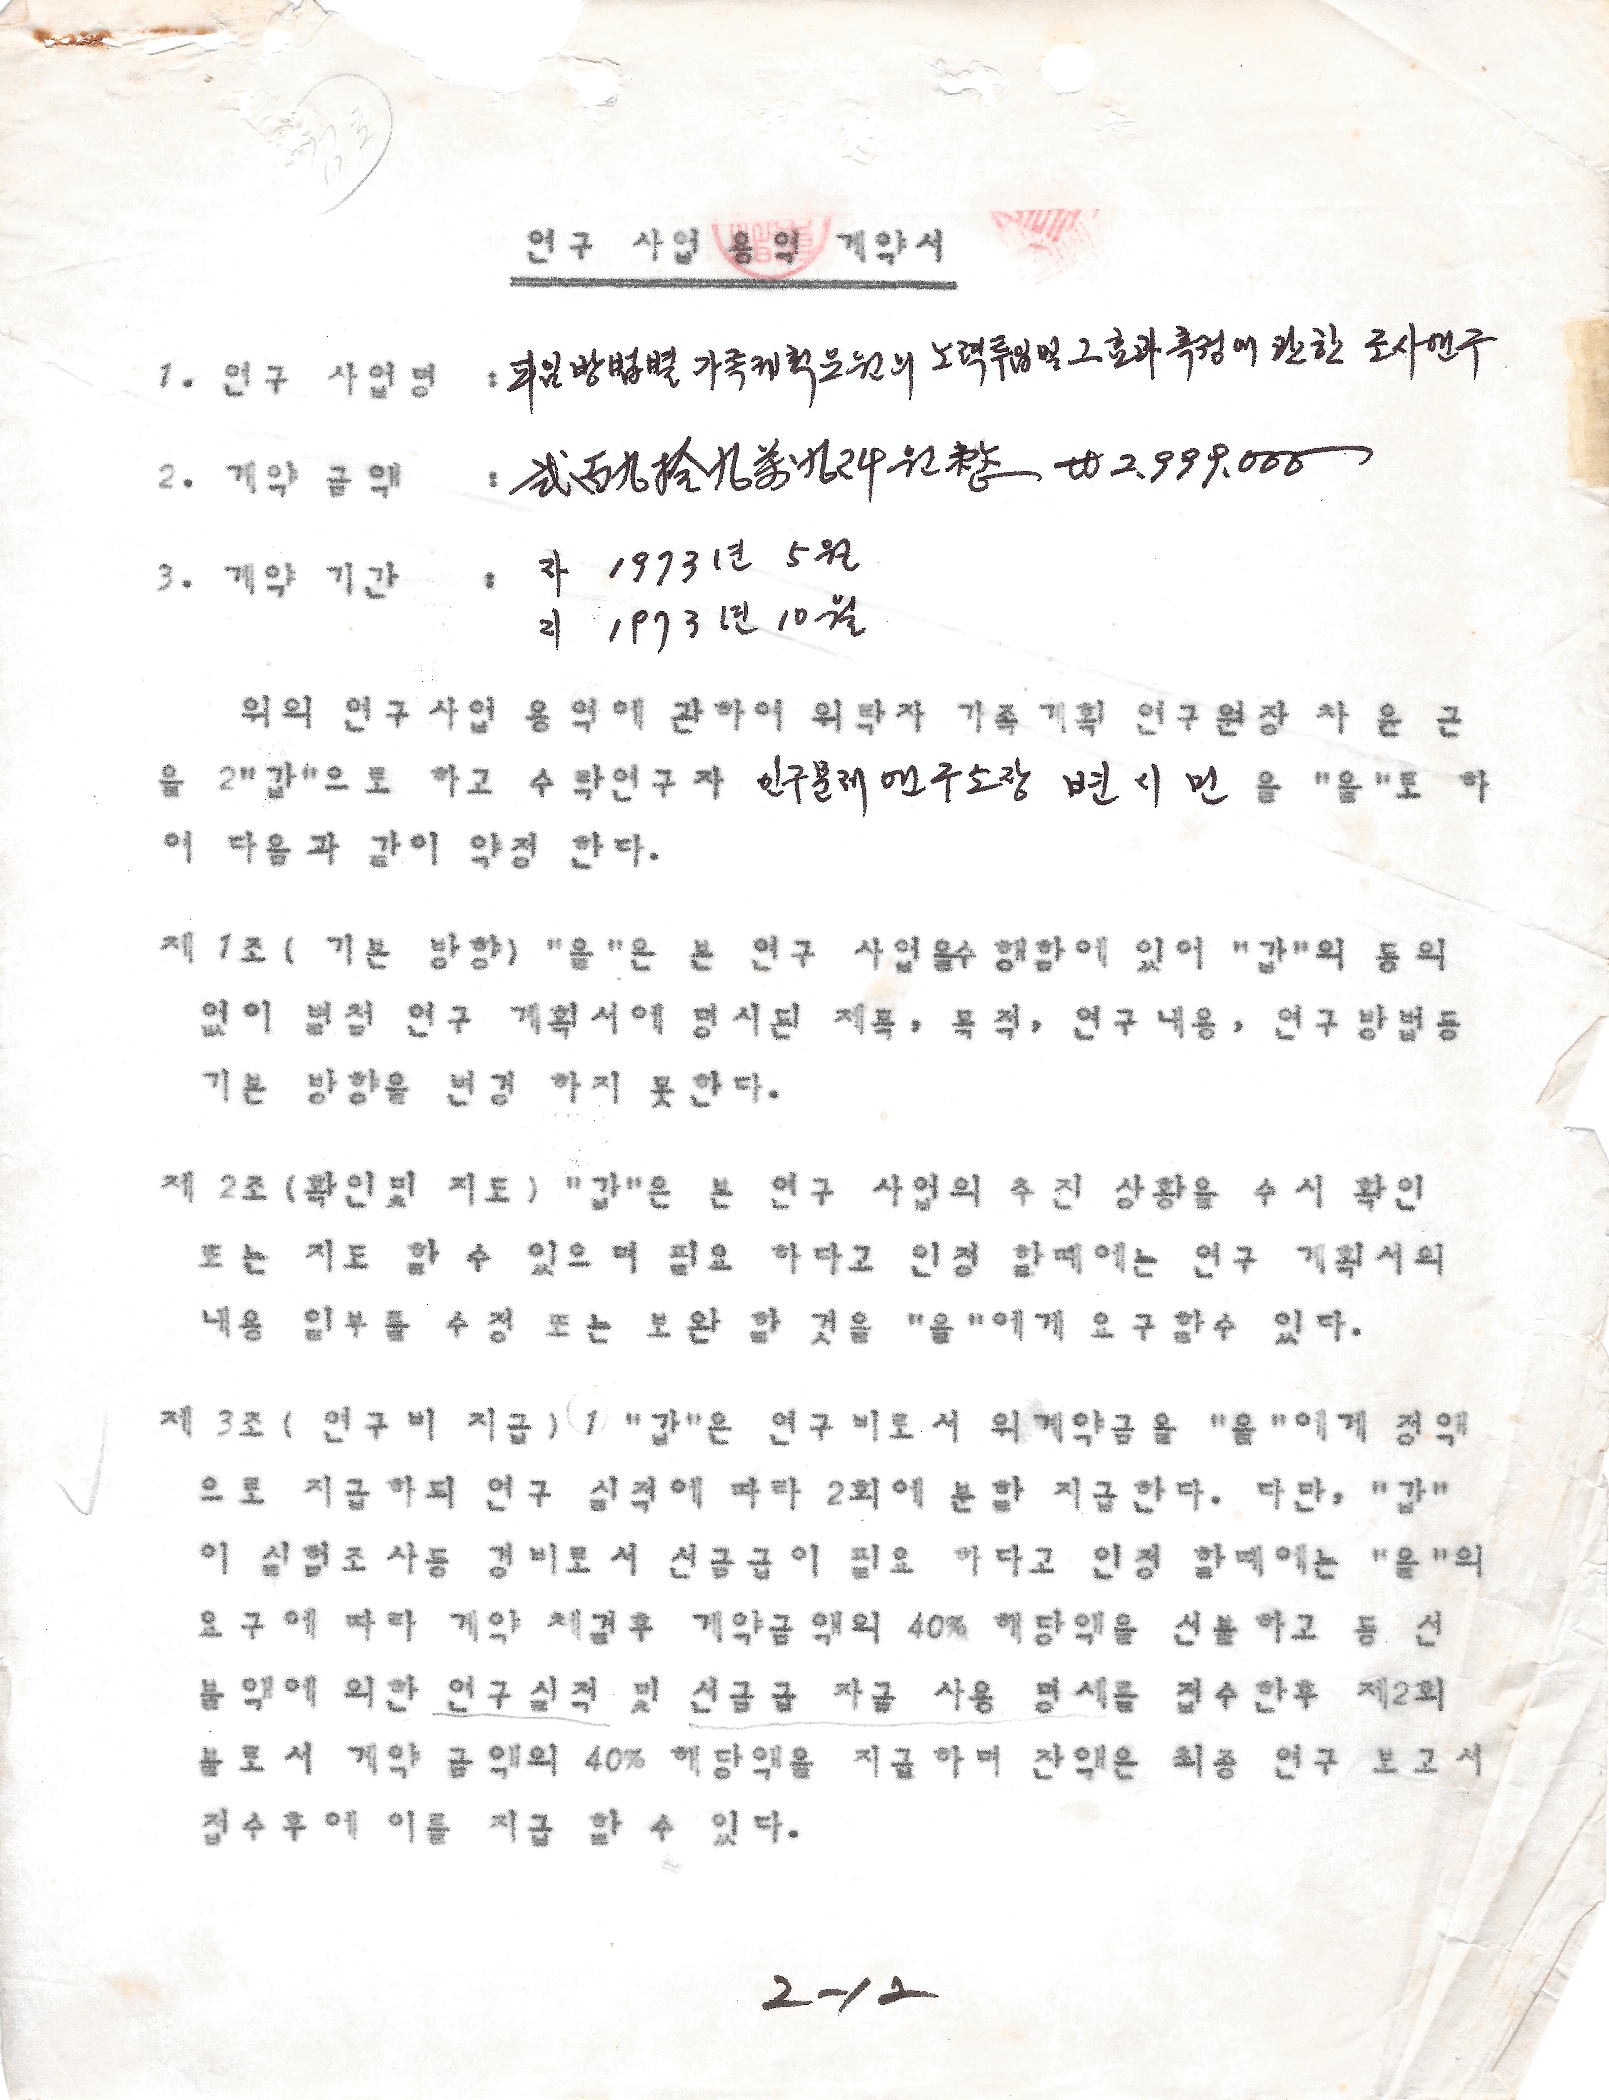 연구 사업 용역 계약서
1. 연구 사업명 : 피임방법별 가족계획요원의 노력투입 및 그 효과측정에 관한 조사연구
2. 계약 금액 : 弐百九拾九萬九阡원整 ₩2,999,000
3. 계약 기간 : 자 1973년 5월
지 1973년 10월
위의 연구사업 용역에 관하여 위탁자 가족계획 연구원장 차 윤 근
을 2"갑"으로 하고 수탁연구자 인구문제연구소장 변 시 민 을 "을"로 하
여 다음과 같이 약정 한다.
제 1조( 기본 방향) "을"은 본 연구 사업을수행함에 있어 "갑"의 동의
없이 별첨 연구 계획서에 명시된 제목, 목적, 연구내용, 연구방법등
기본 방향을 변경 하지 못한다.
제 2조(확인및 지도) "갑"은 본 연구 사업의 추진 상황을 수시 확인
또는 지도 할 수 있으며 필요 하다고 인정 할때에는 연구 계획서의
내용 일부를 수정 또는 보완 할 것을 "을"에게 요구할수 있다.
제 3조( 연구비 지급) 1 "갑"은 연구비로서 위계약금을 "을"에게 정액
으로 지급하되 연구 실적에 따라 2회에 분할 지급한다. 다만, "갑"
이 실험조사등 경비로서 선금급이 필요 하다고 인정 할때에는 "을"의
요구에 따라 계약 체결후 계약금액의 40% 해당액을 선불하고 동 선
불액에 의한 연구실적 및 선금급 자금 사용 명세를 접수한후 제2회
불로서 계약 금액의 40% 해당액을 지급하며 잔액은 최종 연구 보고서
접수후에 이를 지급 할 수 있다.
2-12